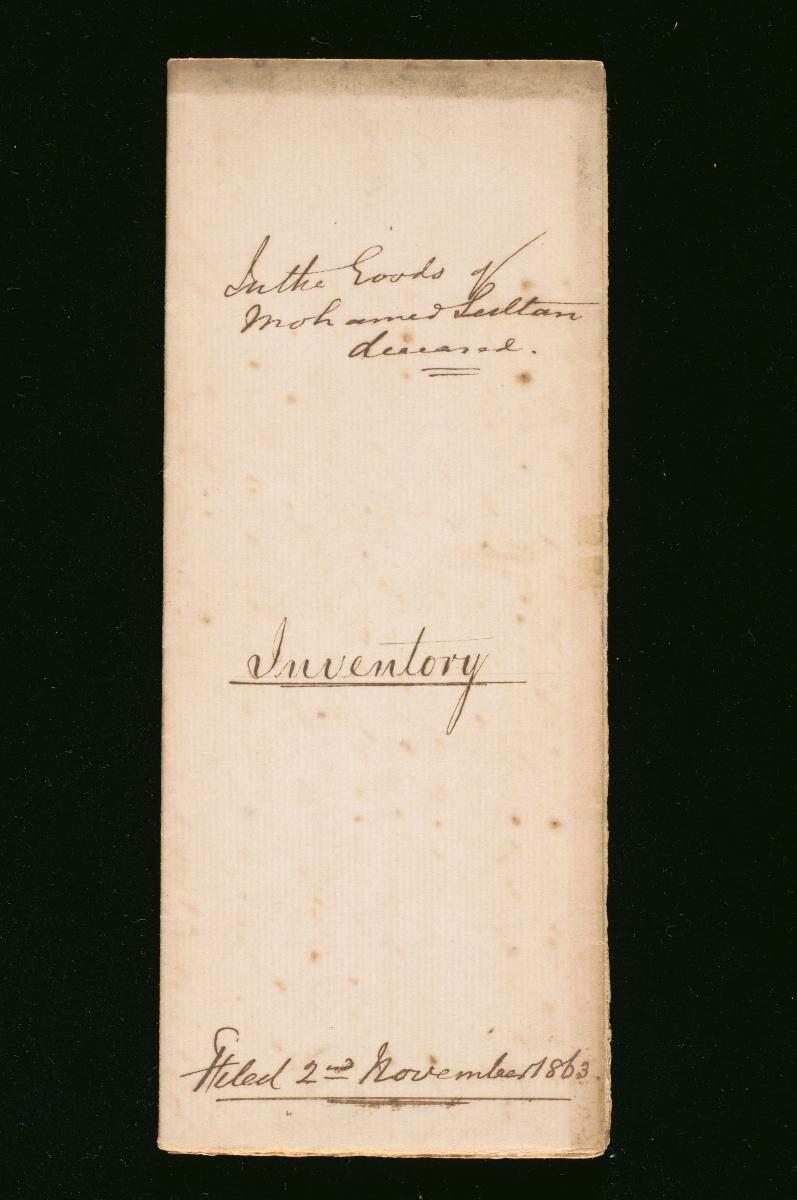 In the Goods of
Mohamed Sultan
deceased.
Inventory
Filed 2nd November 1863